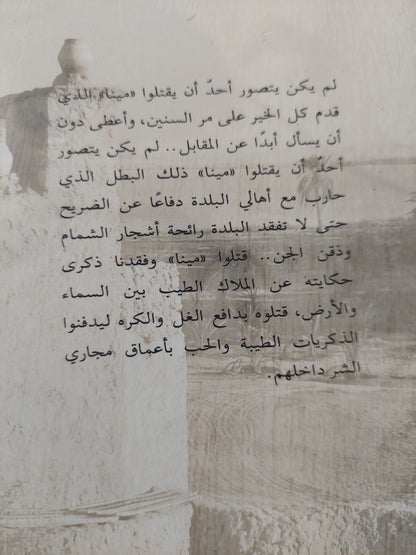 لم يكن يتصور أحدٌ أن يقتلوا «مينا» الذي
قدم كل الخير على مر السنين، وأعطى دون
أن يسأل أبدًا عن المقابل.. لم يكن يتصور
أحدٌ أن يقتلوا «مينا» ذلك البطل الذي
حارب مع أهالي البلدة دفاعًا عن الضريح
حتى لا تفقد البلدة رائحة أشجار الشمام
وذقن الجن.. قتلوا «مينا» وفقدنا ذكرى
حكايته عن الملاك الطيب بين السماء
والأرض، قتلوه بدافع الغل والكره ليدفنوا
الذكريات الطيبة والحب بأعماق مجاري
الشر داخلهم.